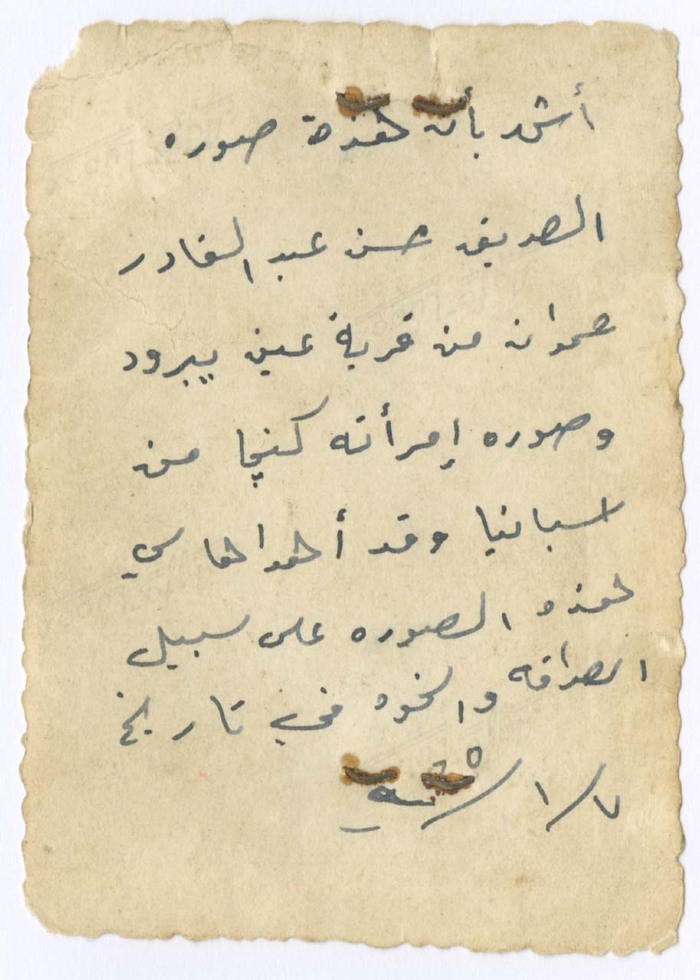 أشهد بأن هذة صوره
الصديق حسن عبد القادر
صموان من قرية عين يبرود
وصوره إمرأته كنيا من
اسبانيا وقد أهداها لي
هذه الصوره على سبيل
الصداقه والخوه في تاريخ
٧/١/